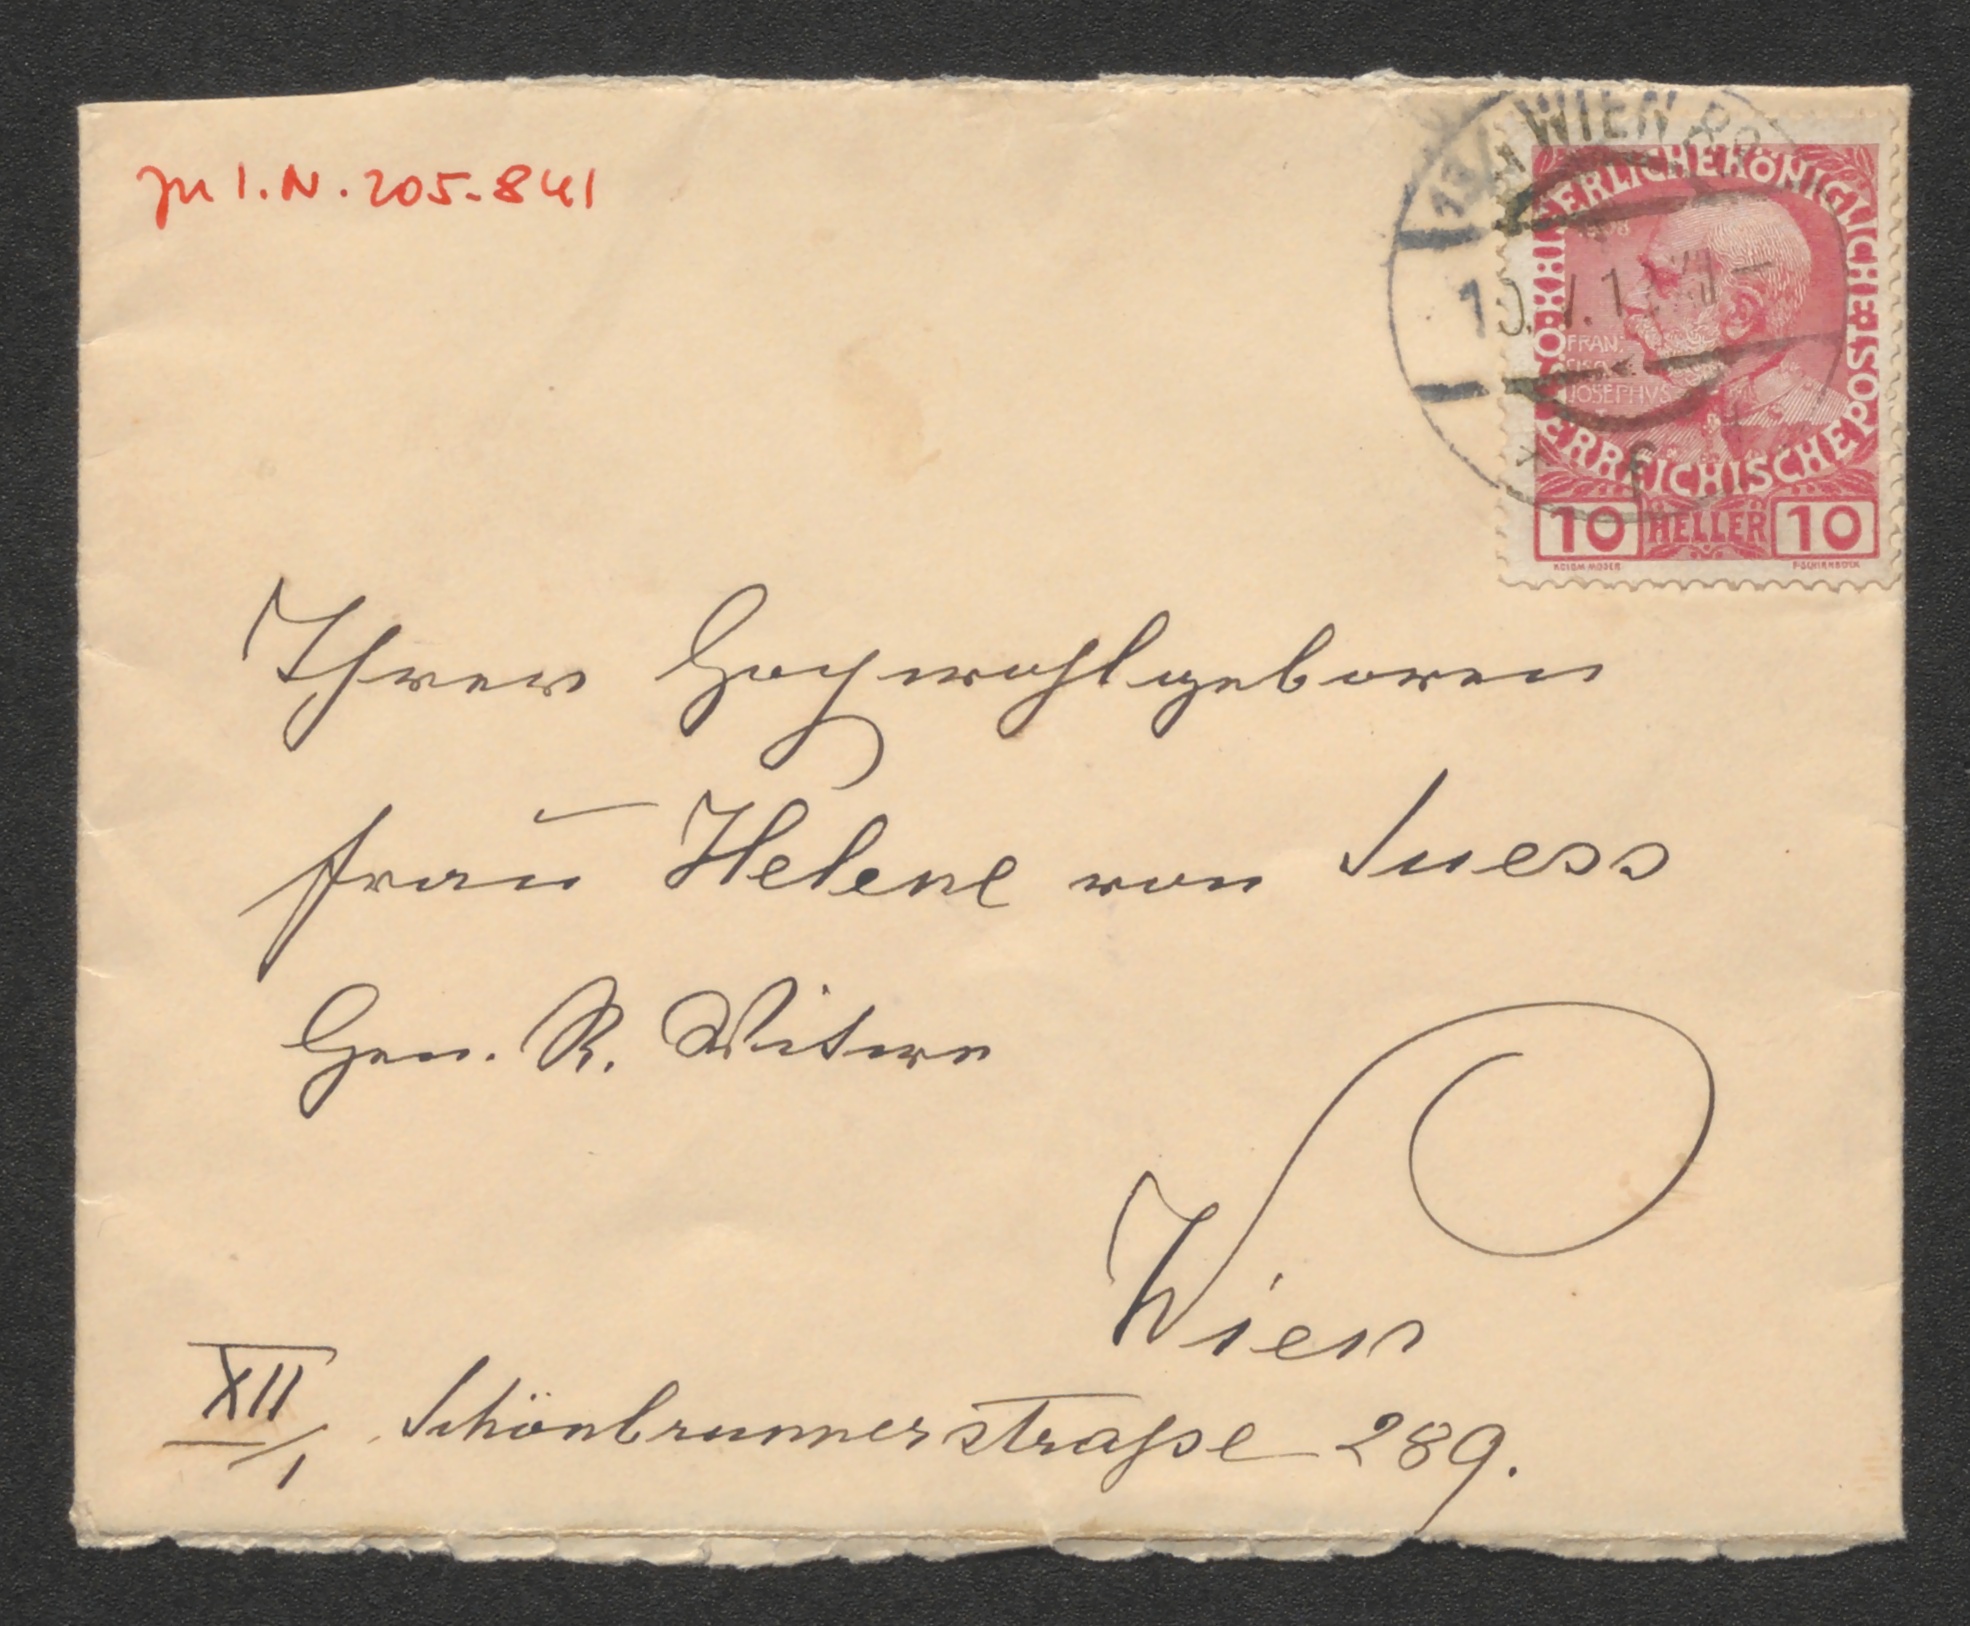 zu I.N. 205.841
13/1 WIEN
10. V. 1
KAISERLICHE KÖNIGLICHE ÖSTERREICHISCHE POST
1908
FRAN
JOSEPHVS
10 HELLER 10
KOLOM. MOSER F. SCHIRNBÖCK
Ihrer Hochwohlgeboren
Frau Helene von Suess
Gen. R. Witwe
Wien
XII/1 Schönbrunnerstraße 289.